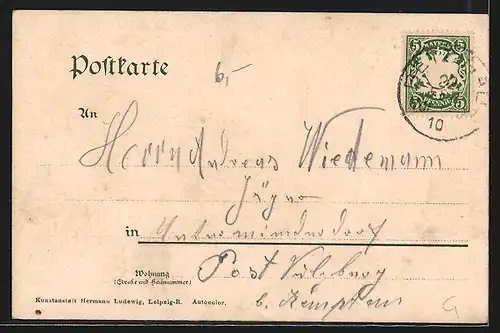 5 BAYERN 5
5 PFENNIG 5
10
Postkarte
6,-
An
Herrn Andreas Wiedemann
in
Post Sulzberg
Wohnung
(Straße und Hausnummer)
b. Kempten
Kunstanstalt Hermann Ludewig, Leipzig-R. Autocolor.